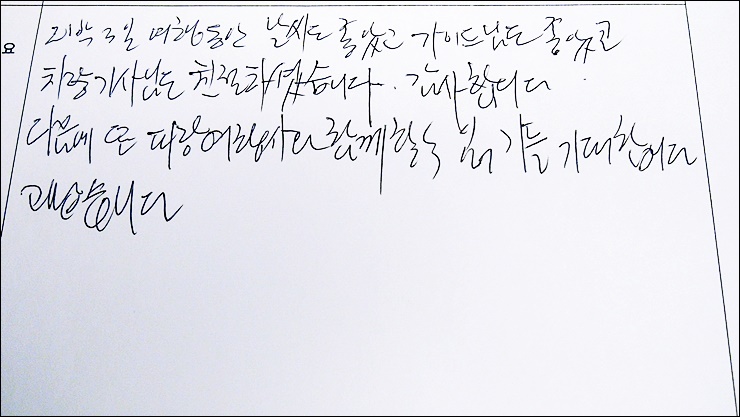 2박 3일 여행동안 날씨도 좋았고 가이드님도 좋았고
요
차량기사님도 친절하셨습니다. 감사합니다
다음에 또 파랑여행사와 함께할 수 있기를 기대합니다
괜찮습니다